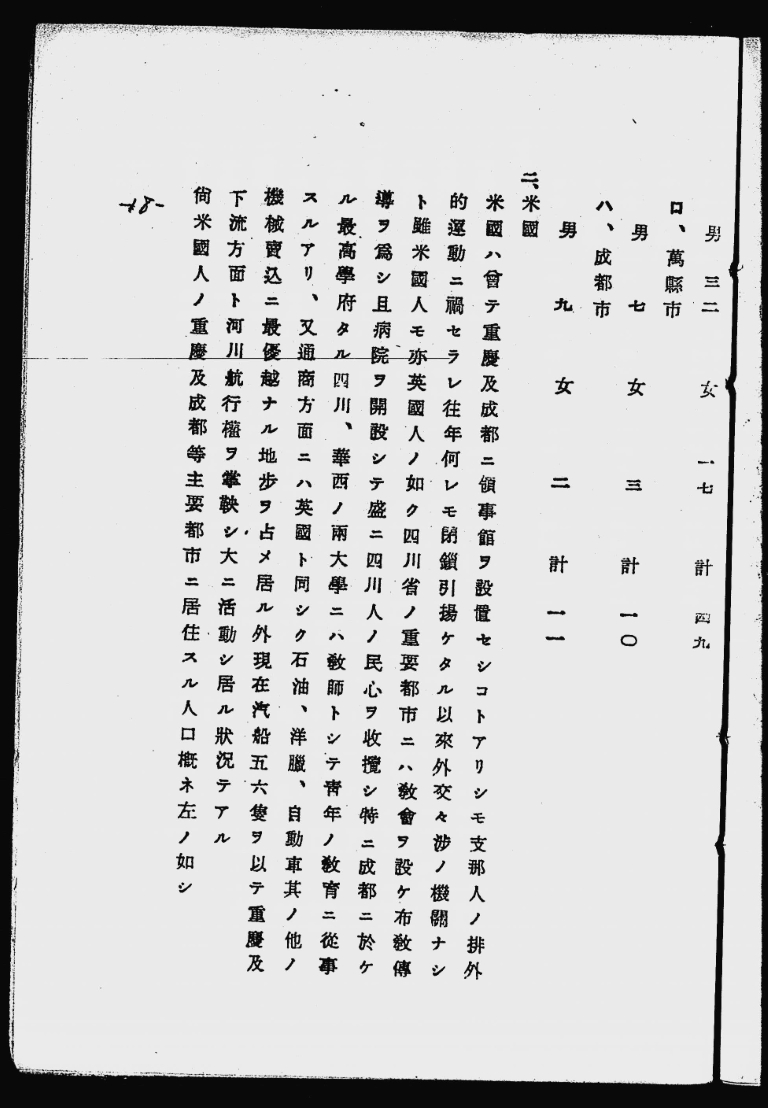 男 三二 女 一七 計 四九
ロ、萬縣市
男 七 女 三 計 一〇
ハ、成都市
男 九 女 二 計 一一
二、米國
米國ハ曾テ重慶及成都ニ領事館ヲ設置セシコトアリシモ支那人ノ排外
的運動ニ禍セラレ往年何レモ閉鎖引揚ケタル以來外交々渉ノ機關ナシ
ト雖米國人モ亦英國人ノ如ク四川省ノ重要都市ニハ敎會ヲ設ケ布敎傳
導ヲ爲シ且病院ヲ開設シテ盛ニ四川人ノ民心ヲ收攬シ特ニ成都ニ於ケ
ル最高學府タル四川、華西ノ兩大學ニハ敎師トシテ靑年ノ敎育ニ從事
スルアリ、又通商方面ニハ英國ト同シク石油、洋臘、自動車其ノ他ノ
機械賣込ニ最優越ナル地步ヲ占メ居ル外現在汽船五六隻ヲ以テ重慶及
下流方面ト河川航行權ヲ掌鞅シ大ニ活動シ居ル狀況テアル
尙米國人ノ重慶及成都等主要都市ニ居住スル人口槪ネ左ノ如シ
-18-